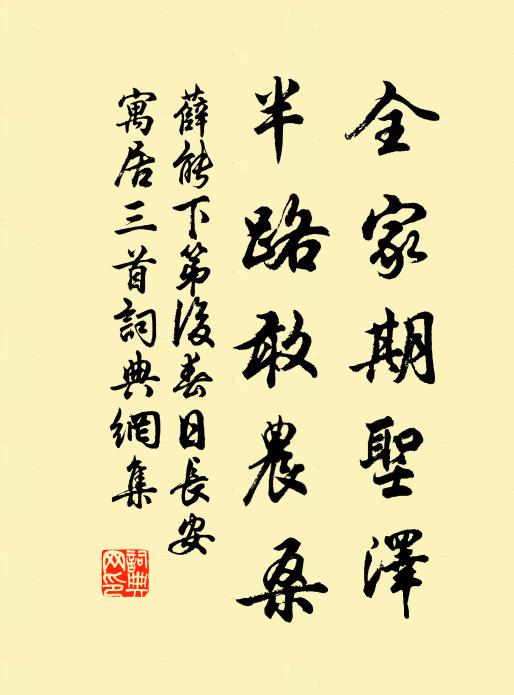 全家期聖澤
半路敢農桑
薛能下第後春日長安
寓居三首詞典網集
詞典
网印